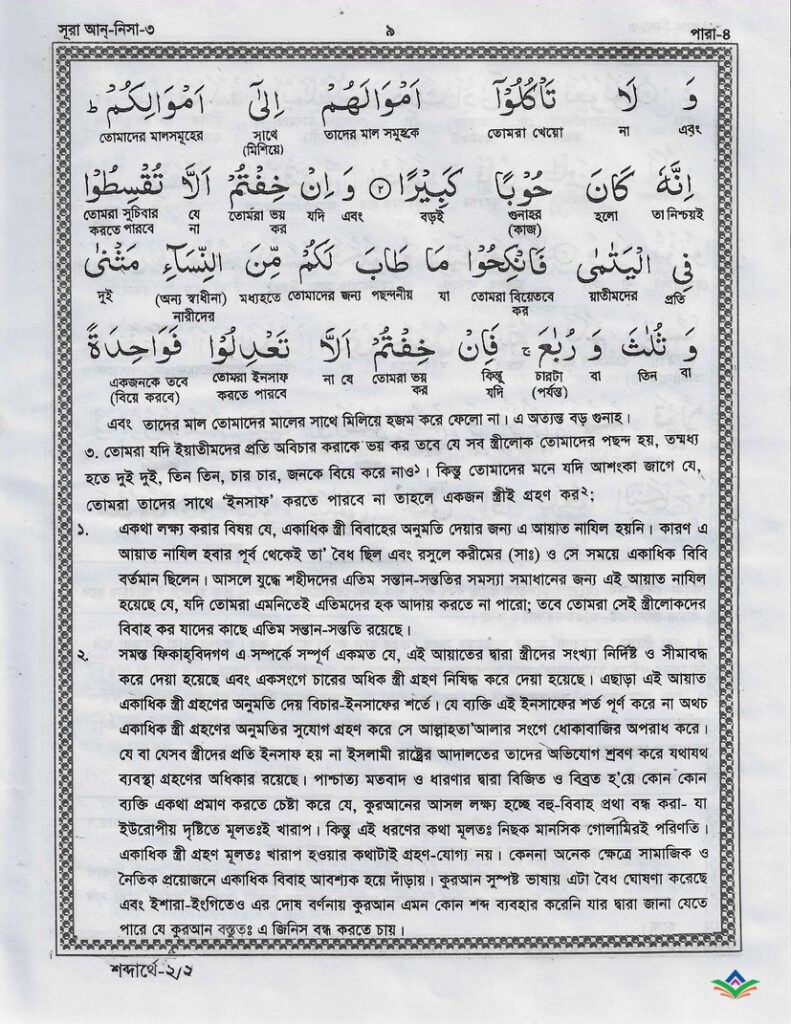 সূরা আন্-নিসা-৩ ৯ পারা-৪
وَ لَا تَاْكُلُوْۤا اَمْوَالَهُمْ اِلٰۤى اَمْوَالِكُمْ ؕ
এবং না তোমরা খেয়ো তাদের মাল সমূহকে সাথে (মিশিয়ে) তোমাদের মালসমূহের
اِنَّهٗ كَانَ حُوْبًا كَبِيْرًا ۝۲ وَ اِنْ خِفْتُمْ اَلَّا تُقْسِطُوْا
তা নিশ্চয়ই হলো গুনাহর (কাজ) বড়ই এবং যদি তোমরা ভয় কর যে না তোমরা সুবিচার করতে পারবে
فِي الْيَتٰمٰى فَانْكِحُوْا مَا طَابَ لَكُمْ مِّنَ النِّسَآءِ مَثْنٰى
প্রতি য়াতীমদের তোমরা বিয়েতবে কর যা পছন্দনীয় তোমাদের জন্য মধ্যহতে (অন্য স্বাধীনা) নারীদের দুই
وَ ثُلٰثَ وَ رُبٰعَ ۚ فَاِنْ خِفْتُمْ اَلَّا تَعْدِلُوْا فَوَاحِدَةً
বা তিন বা চারটা (পর্যন্ত) কিন্তু যদি তোমরা ভয় কর না যে তোমরা ইনসাফ করতে পারবে একজনকে তবে (বিয়ে করবে)
এবং তাদের মাল তোমাদের মালের সাথে মিলিয়ে হজম করে ফেলো না। এ অত্যন্ত বড় গুনাহ।
৩. তোমরা যদি ইয়াতীমদের প্রতি অবিচার করাকে ভয় কর তবে যে সব স্ত্রীলোক তোমাদের পছন্দ হয়, তন্মধ্য
হতে দুই দুই, তিন তিন, চার চার, জনকে বিয়ে করে নাও১। কিন্তু তোমাদের মনে যদি আশংকা জাগে যে,
তোমরা তাদের সাথে ‘ইনসাফ’ করতে পারবে না তাহলে একজন স্ত্রীই গ্রহণ কর২;
১. একথা লক্ষ্য করার বিষয় যে, একাধিক স্ত্রী বিবাহের অনুমতি দেয়ার জন্য এ আয়াত নাযিল হয়নি। কারণ এ
আয়াত নাযিল হবার পূর্ব থেকেই তা' বৈধ ছিল এবং রসূলে করীমের (সাঃ) ও সে সময়ে একাধিক বিবি
বর্তমান ছিলেন। আসলে যুদ্ধে শহীদদের এতিম সন্তান-সন্ততির সমস্যা সমাধানের জন্য এই আয়াত নাযিল
হয়েছে যে, যদি তোমরা এমনিতেই এতিমদের হক আদায় করতে না পারো; তবে তোমরা সেই স্ত্রীলোকদের
বিবাহ কর যাদের কাছে এতিম সন্তান-সন্ততি রয়েছে।
২. সমস্ত ফিকাহ্‌বিদগণ এ সম্পর্কে সম্পূর্ণ একমত যে, এই আয়াতের দ্বারা স্ত্রীদের সংখ্যা নির্দিষ্ট ও সীমাবদ্ধ
করে দেয়া হয়েছে এবং একসংগে চারের অধিক স্ত্রী গ্রহণ নিষিদ্ধ করে দেয়া হয়েছে। এছাড়া এই আয়াত
একাধিক স্ত্রী গ্রহণের অনুমতি দেয় বিচার-ইনসাফের শর্তে। যে ব্যক্তি এই ইনসাফের শর্ত পূর্ণ করে না অথচ
একাধিক স্ত্রী গ্রহণের অনুমতির সুযোগ গ্রহণ করে সে আল্লাহতা'আলার সংগে ধোকাবাজির অপরাধ করে।
যে বা যেসব স্ত্রীদের প্রতি ইনসাফ হয় না ইসলামী রাষ্ট্রের আদালতের তাদের অভিযোগ শ্রবণ করে যথাযথ
ব্যবস্থা গ্রহণের অধিকার রয়েছে। পাশ্চাত্য মতবাদ ও ধারণার দ্বারা বিজিত ও বিব্রত হ'য়ে কোন কোন
ব্যক্তি একথা প্রমাণ করতে চেষ্টা করে যে, কুরআনের আসল লক্ষ্য হচ্ছে বহু-বিবাহ প্রথা বন্ধ করা- যা
ইউরোপীয় দৃষ্টিতে মূলতঃই খারাপ। কিন্তু এই ধরণের কথা মূলতঃ নিছক মানসিক গোলামিরই পরিণতি।
একাধিক স্ত্রী গ্রহণ মূলতঃ খারাপ হওয়ার কথাটাই গ্রহণ-যোগ্য নয়। কেননা অনেক ক্ষেত্রে সামাজিক ও
নৈতিক প্রয়োজনে একাধিক বিবাহ আবশ্যক হয়ে দাঁড়ায়। কুরআন সুস্পষ্ট ভাষায় এটা বৈধ ঘোষণা করেছে
এবং ইশারা-ইংগিতেও এর দোষ বর্ণনায় কুরআন এমন কোন শব্দ ব্যবহার করেনি যার দ্বারা জানা যেতে
পারে যে কুরআন বস্তুতঃ এ জিনিস বন্ধ করতে চায়।
শব্দার্থে-২/২